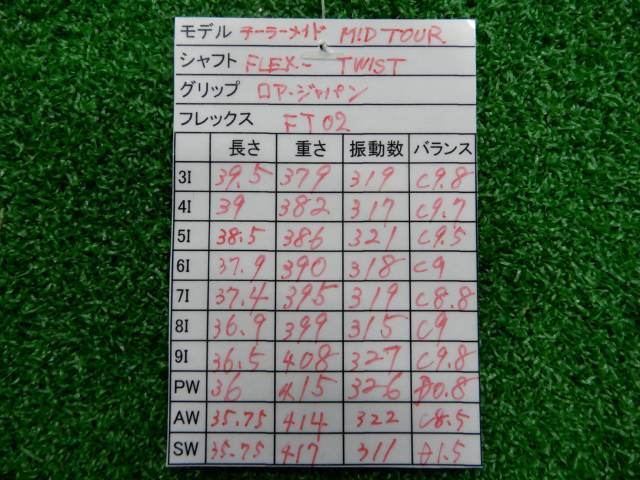 モデル テーラーメイド MID TOUR
シャフト FLEX- TWIST
グリップ ロア・ジャパン
フレックス FT02
長さ 重さ 振動数 バランス
3I 39.5 379 319 C9.8
4I 39 382 317 C9.7
5I 38.5 386 321 C9.5
6I 37.9 390 318 C9
7I 37.4 395 319 C8.8
8I 36.9 399 315 C9
9I 36.5 408 327 C9.8
PW 36 415 326 D0.8
AW 35.75 414 322 C8.5
SW 35.75 417 311 D1.5